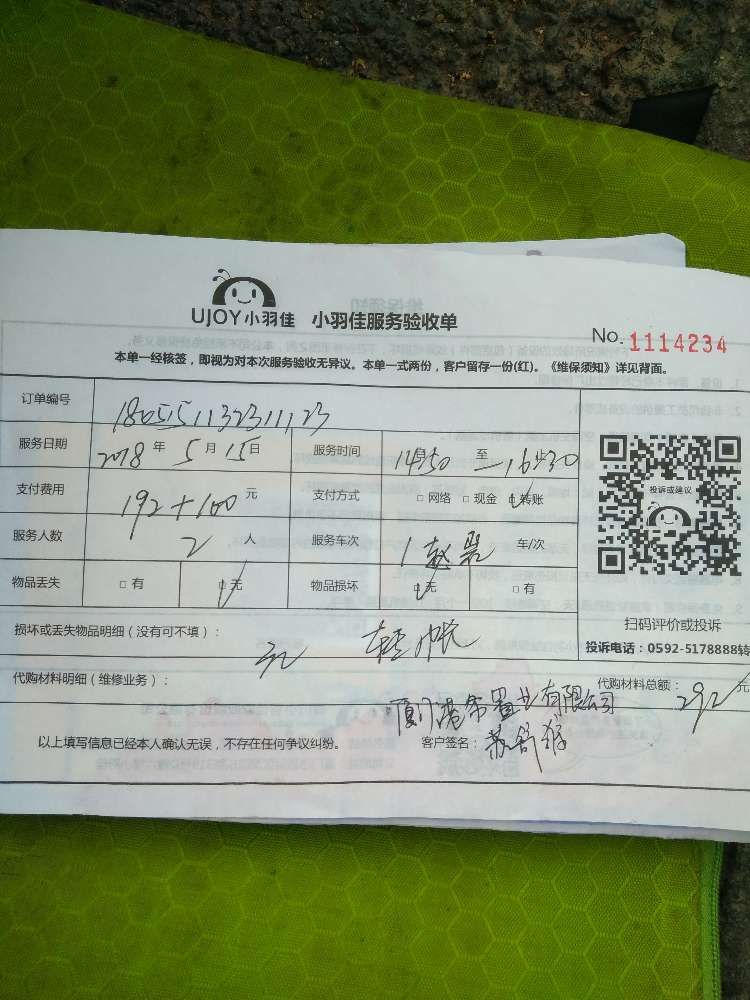 UJOY小羽佳 小羽佳服务验收单
No. 1114234
本单一经核签，即视为对本次服务验收无异议。本单一式两份，客户留存一份(红)。《维保须知》详见背面。
订单编号 180515113231123
服务日期 2018年5月15日 服务时间 14:50至16:30
支付费用 192+100元 支付方式 □网络 □现金 □转账
服务人数 2人 服务车次 1 车/次
物品丢失 □有 □无 物品损坏 □无 □有
投诉或建议
扫码评价或投诉
投诉电话：0592-5178888转
损坏或丢失物品明细（没有可不填）：
代购材料明细（维修业务）： 代购材料总额：292元
置业有限公司
以上填写信息已经本人确认无误，不存在任何争议纠纷。 客户签名：